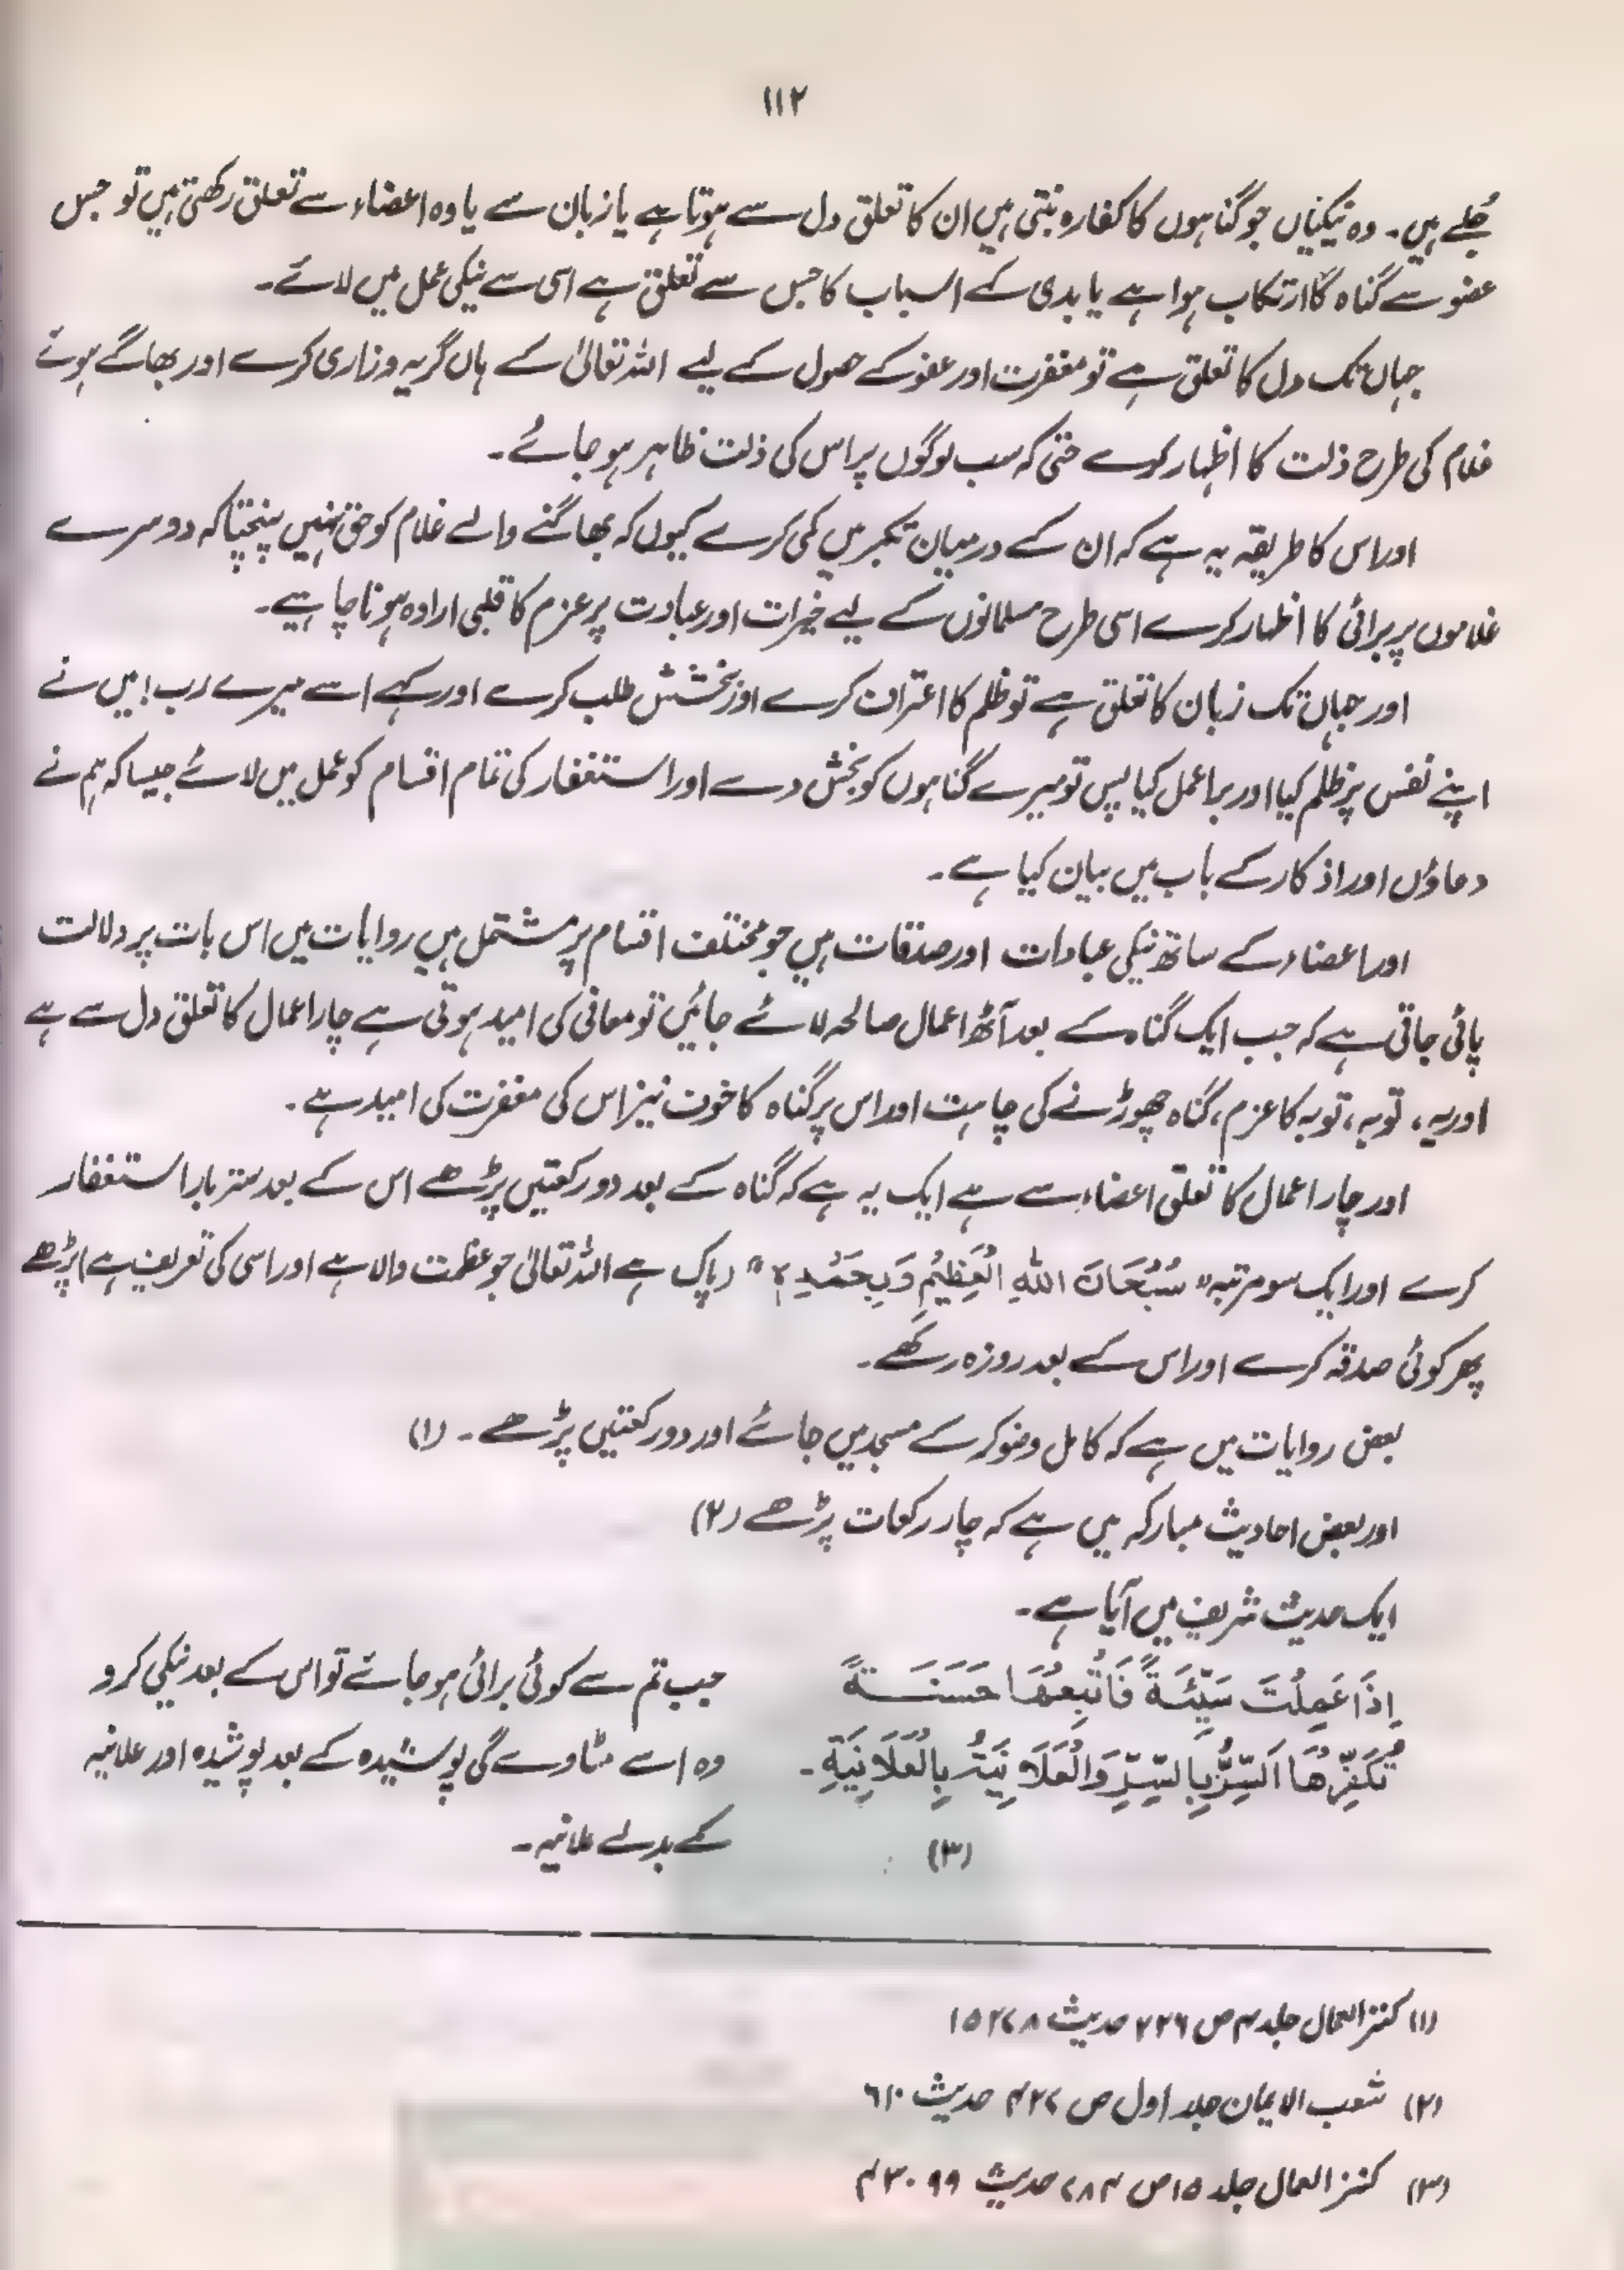 ۱۱۲
جُلے ہیں۔ وہ نیکیاں جو گناہوں کا کفارہ بنتی ہیں ان کا تعلق دل سے ہوتا ہے یا زبان سے یا وہ اعضاء سے تعلق رکھتی ہیں تو جس
عضو سے گناہ کا ارتکاب ہوا ہے یا بدی کے اسباب کا جس سے تعلق ہے اسی سے نیکی عمل میں لائے۔
جہاں تک دل کا تعلق ہے تو مغفرت اور عفو کے حصول کے لیے اللہ تعالیٰ کے ہاں گریہ و زاری کرے اور بھاگے ہوئے
غلام کی طرح ذلت کا اظہار کرے حتیٰ کہ سب لوگوں پر اس کی ذلت ظاہر ہو جائے۔
اور اس کا طریقہ یہ ہے کہ ان کے درمیان تکبر میں کمی کرے کیوں کہ بھاگنے والے غلام کو حق نہیں پہنچتا کہ دوسرے
غلاموں پر برائی کا اظہار کرے اسی طرح مسلمانوں کے لیے خیرات اور عبادت پر عزم کا قلبی ارادہ ہونا چاہیے۔
اور جہاں تک زبان کا تعلق ہے تو ظلم کا اعتراف کرے اور بخشش طلب کرے اور کہے اے میرے رب! میں نے
اپنے نفس پر ظلم کیا اور برا عمل کیا پس تو میرے گناہوں کو بخش دے اور استغفار کی تمام اقسام کو عمل میں لائے جیسا کہ ہم نے
دعاؤں اور اذکار کے باب میں بیان کیا ہے۔
اور اعضاء کے ساتھ نیکی عبادات اور صدقات ہیں جو مختلف اقسام پر مشتمل ہیں روایات میں اس بات پر دلالت
پائی جاتی ہے کہ جب ایک گناہ کے بعد آٹھ اعمال صالحہ لائے جائیں تو معافی کی امید ہوتی ہے چار اعمال کا تعلق دل سے ہے
اور یہ، توبہ، توبہ کا عزم، گناہ چھوڑنے کی چاہت اور اس پر گناہ کا خوف نیز اس کی مغفرت کی امید ہے۔
اور چار اعمال کا تعلق اعضاء سے ہے ایک یہ ہے کہ گناہ کے بعد دو رکعتیں پڑھے اس کے بعد ستر بار استغفار
کرے اور ایک سو مرتبہ "سُبْحَانَ اللّٰهِ الْعَظِيْمِ وَبِحَمْدِهٖ" (پاک ہے اللہ تعالیٰ جو عظمت والا ہے اور اسی کی تعریف ہے) پڑھے
پھر کوئی صدقہ کرے اور اس کے بعد روزہ رکھے۔
بعض روایات میں ہے کہ کامل وضو کر کے مسجد میں جائے اور دو رکعتیں پڑھے۔ (۱)
اور بعض احادیث مبارکہ میں ہے کہ چار رکعات پڑھے (۲)
ایک حدیث شریف میں آیا ہے۔
اِذَا عَمِلْتَ سَيِّئَةً فَاتْبِعْهَا حَسَنَةً
تُكَفِّرْهَا اَلسِّرُّ بِالسِّرِّ وَالْعَلَانِيَةُ بِالْعَلَانِيَةِ۔
(۳)
جب تم سے کوئی برائی ہو جائے تو اس کے بعد نیکی کرو
وہ اسے مٹا دے گی پوشیدہ کے بعد پوشیدہ اور علانیہ
کے بدلے علانیہ۔
(۱) کنز العمال جلد ۴ ص ۲۲۶ حدیث ۱۵۲۷۸
(۲) شعب الایمان جلد اول ص ۴۲۷ حدیث ۶۱۰
(۳) کنز العمال جلد ۱۵ ص ۷۸۴ حدیث ۴۳۰۹۹